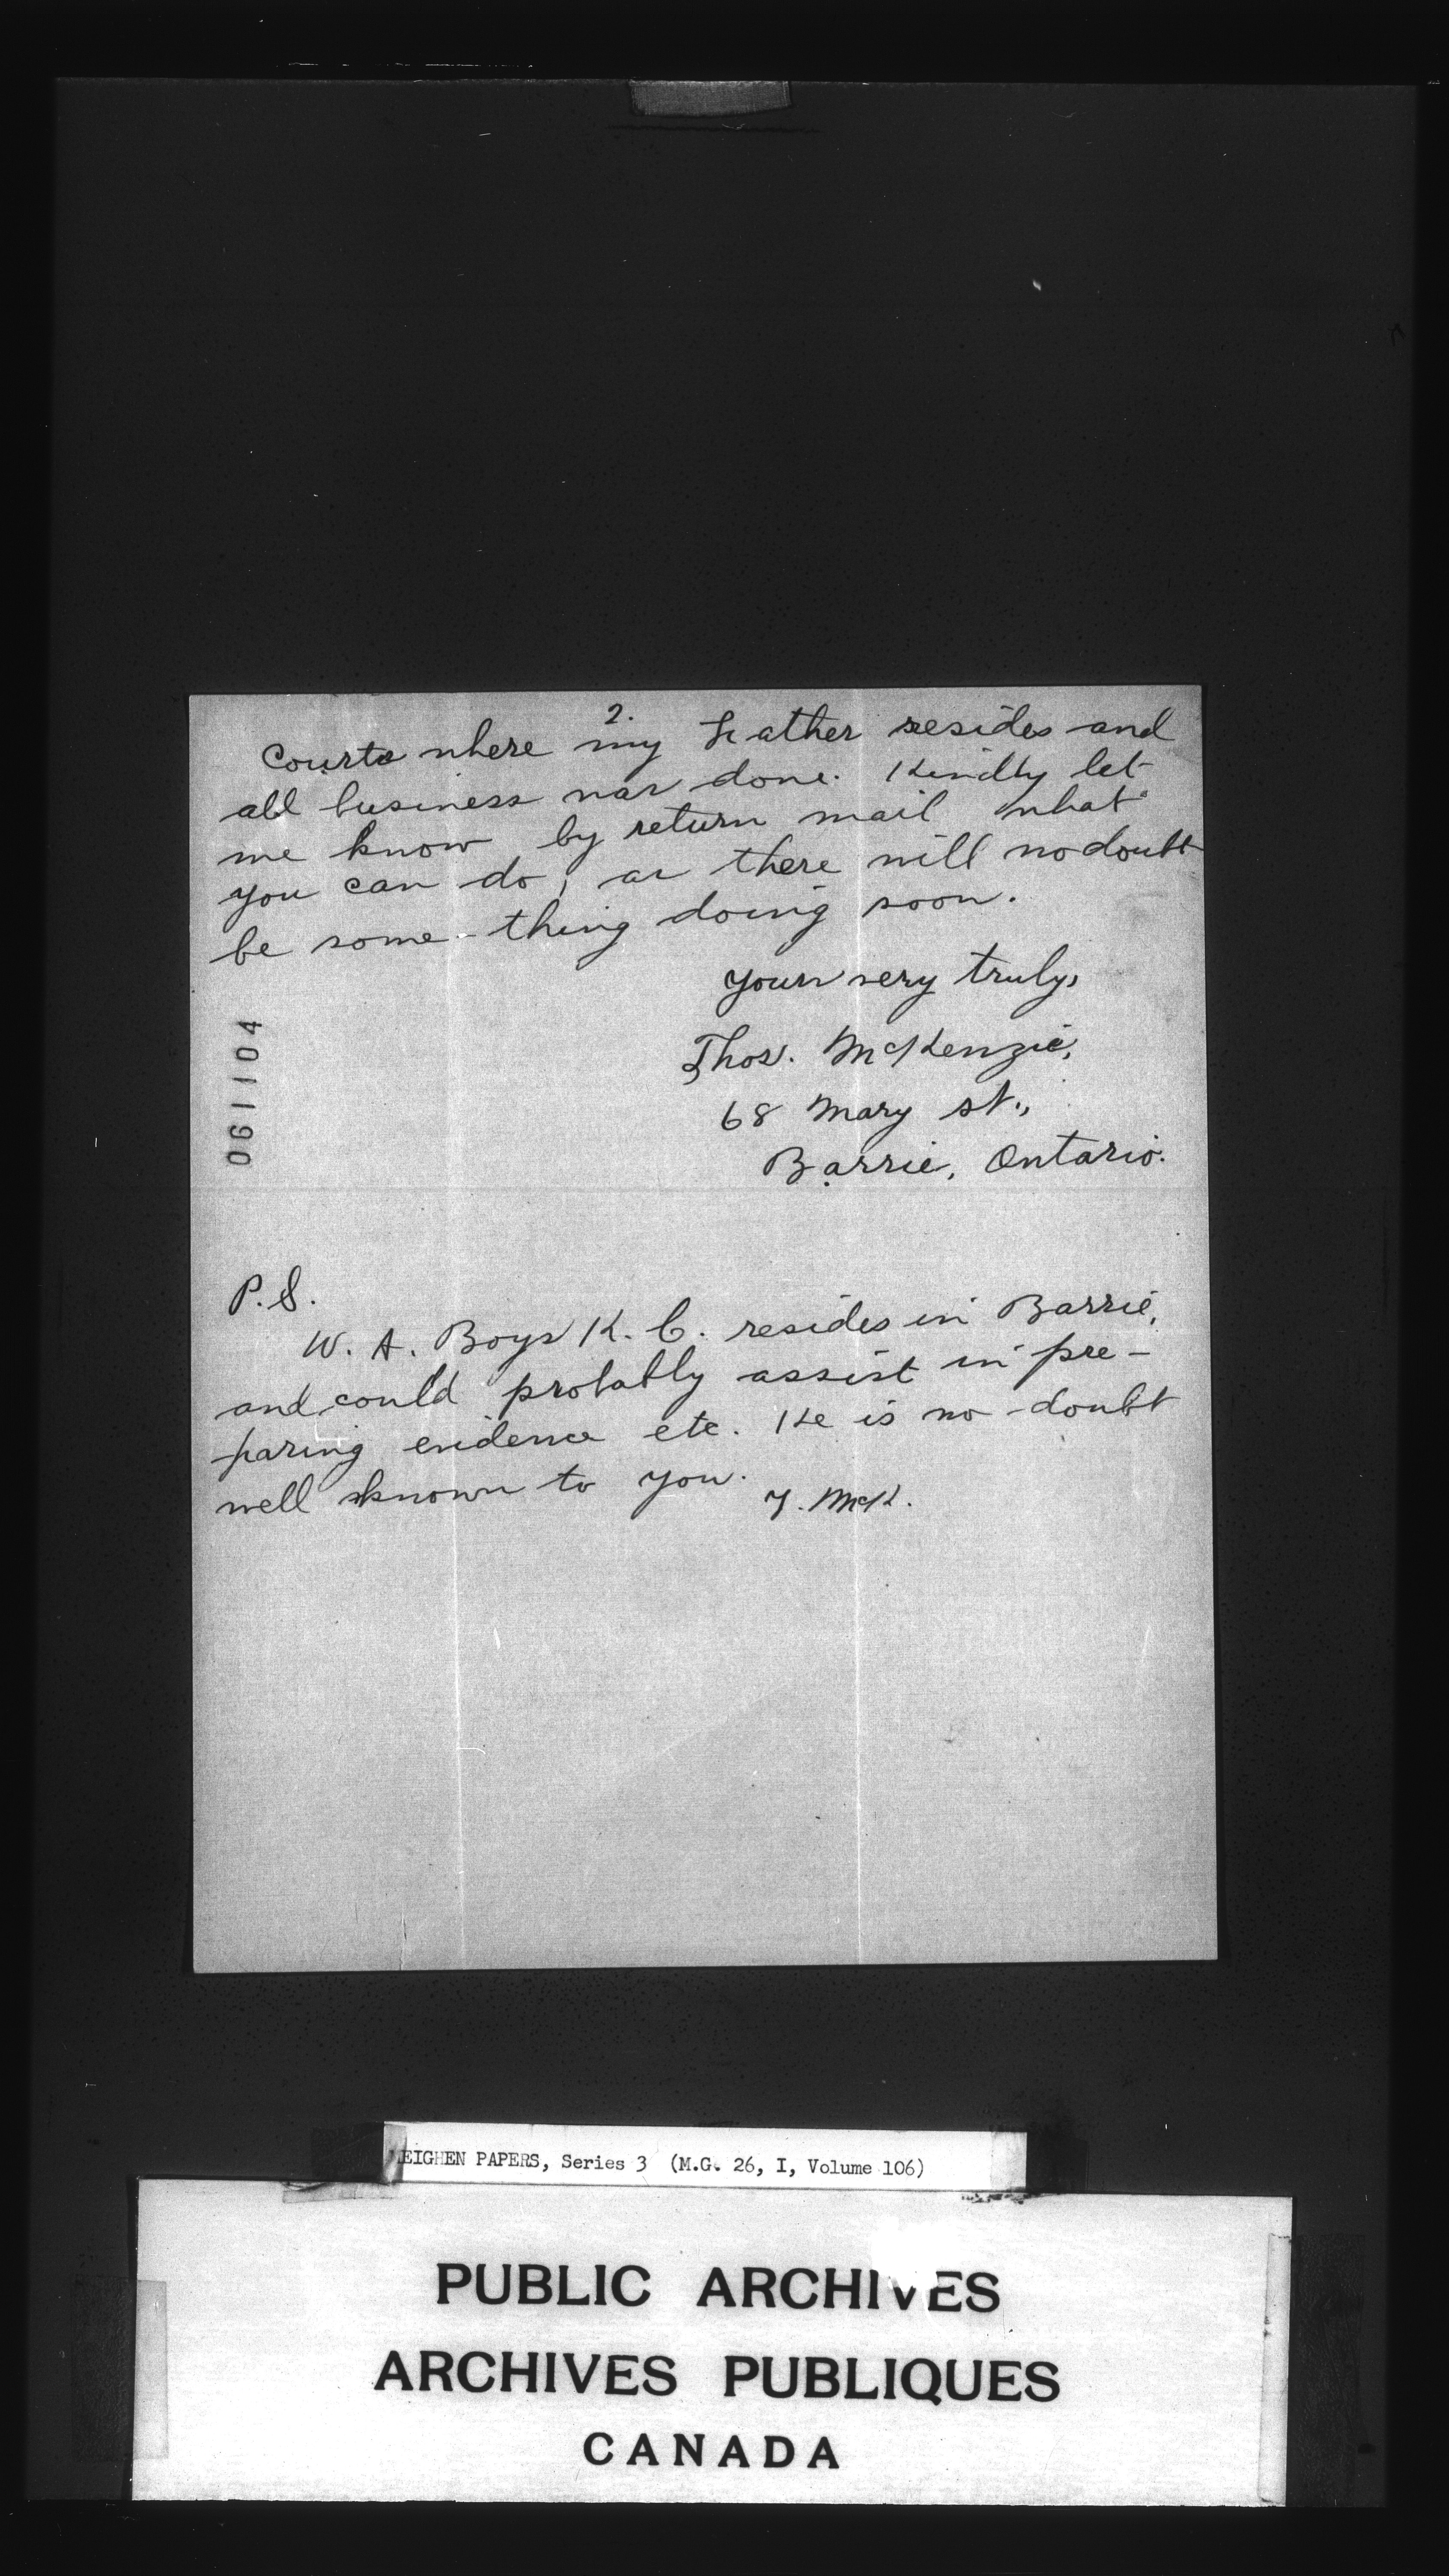 2.
Courts where my Father resides and
all business was done. Kindly let
me know by return mail what
you can do, as there will no doubt
be some-thing doing soon.
Yours very truly,
Thos. McKenzie,
68 Mary St.,
Barrie, Ontario.
061104
P.S.
W. A. Boys K. C. resides in Barrie,
and could probably assist in pre-
paring evidence etc. He is no doubt
well known to you.
T. McK.
MEIGHEN PAPERS, Series 3 (M.G. 26, I, Volume 106)
PUBLIC ARCHIVES
ARCHIVES PUBLIQUES
CANADA